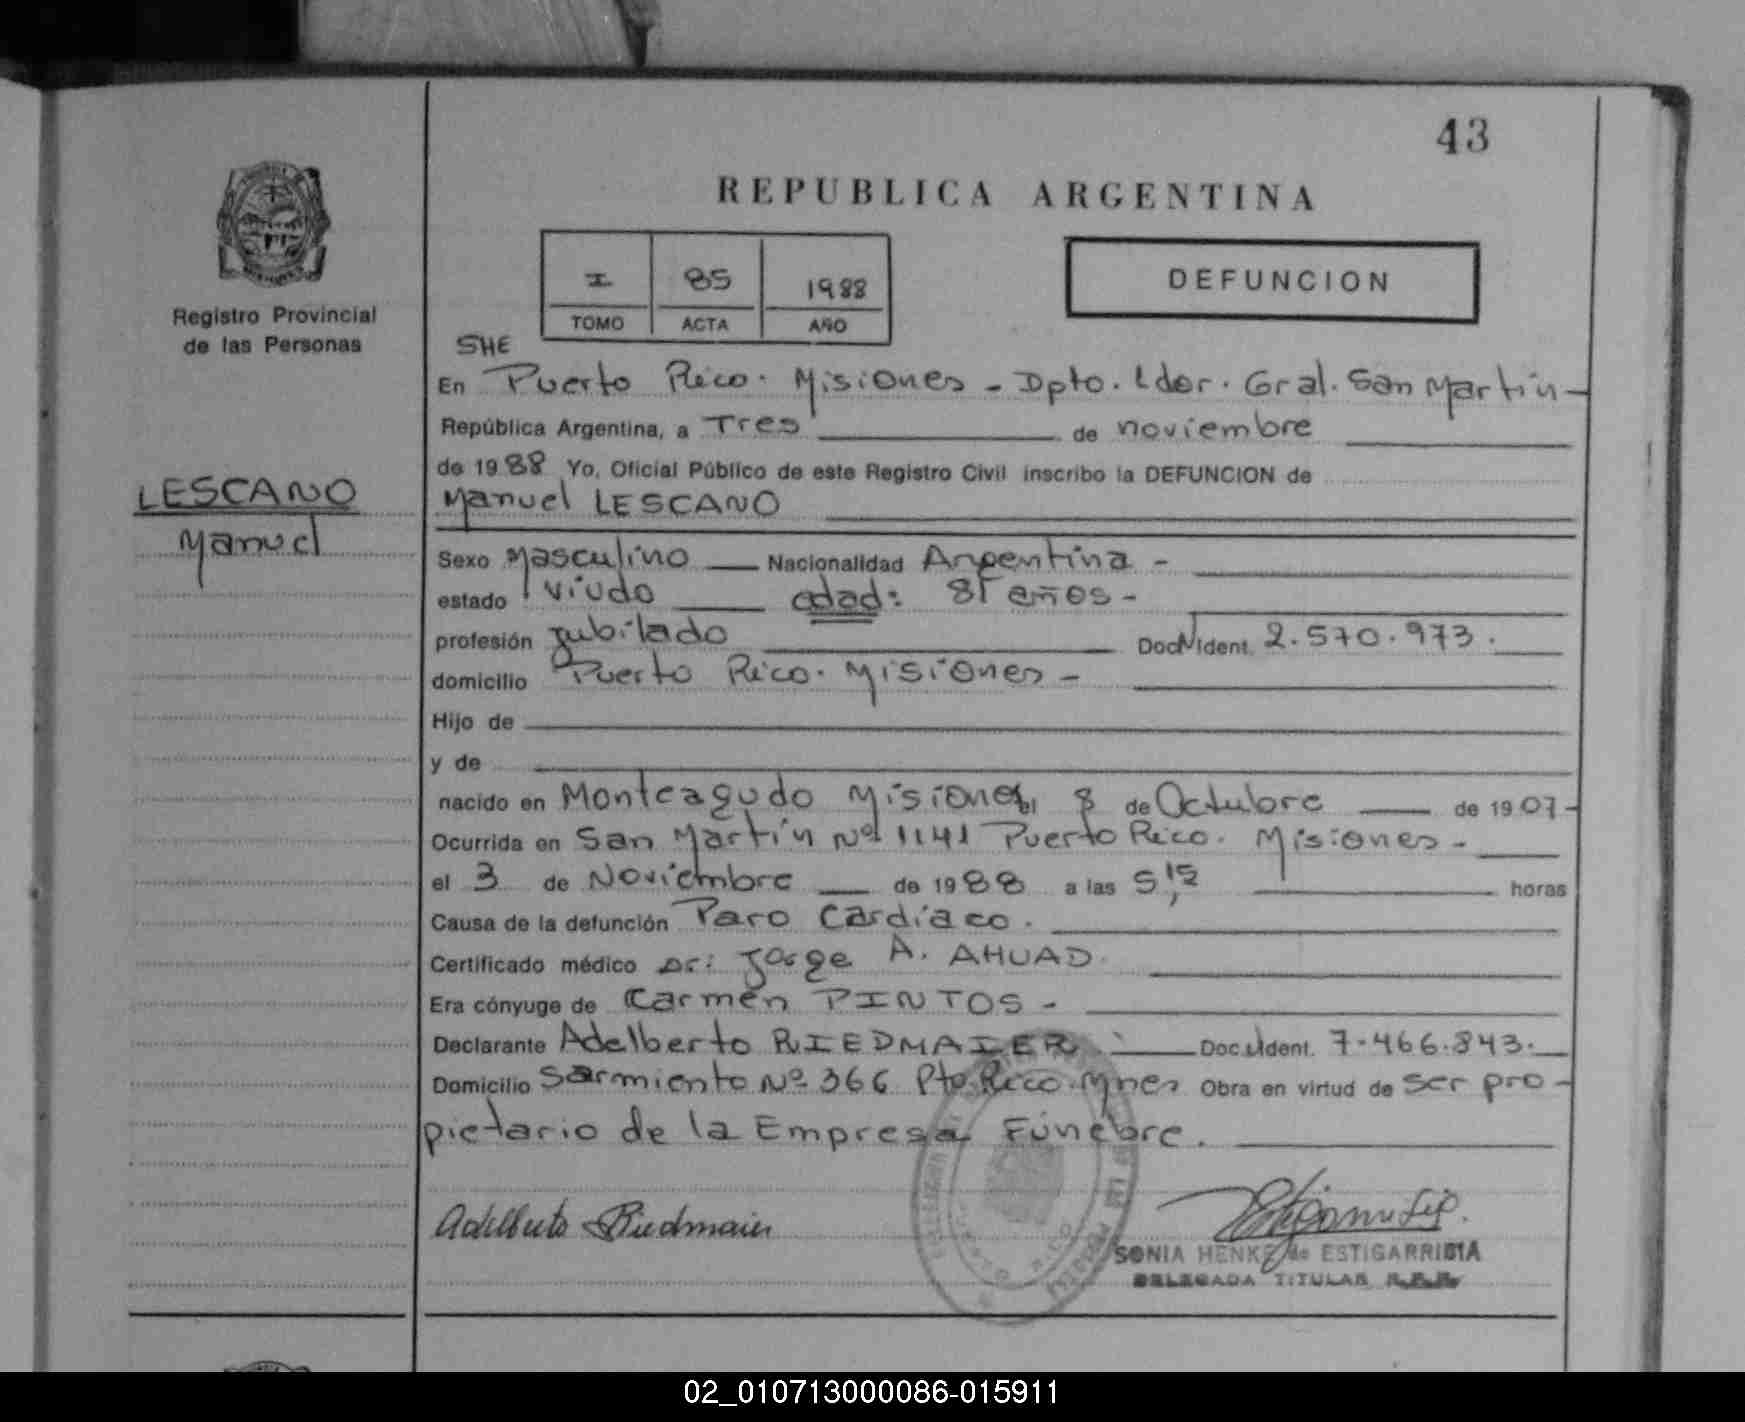 43
REPUBLICA ARGENTINA
I 85 1988
TOMO ACTA AÑO
DEFUNCION
Registro Provincial
de las Personas
LESCANO
Manuel
SHE
En Puerto Rico. Misiones - Dpto. Ldor. Gral. San Martín -
República Argentina, a Tres de noviembre
de 1988 Yo, Oficial Público de este Registro Civil inscribo la DEFUNCION de
Manuel LESCANO
Sexo Masculino Nacionalidad Argentina -
estado viudo edad: 81 años -
profesión Jubilado Doc. Ident. 2.570.973.
domicilio Puerto Rico. Misiones -
Hijo de
y de
nacido en Monteagudo Misiones el 8 de Octubre de 1907 -
Ocurrida en San Martín Nº 1141 Puerto Rico. Misiones -
el 3 de Noviembre de 1988 a las 5,15 horas
Causa de la defunción Paro Cardíaco.
Certificado médico Dr: Jorge A. AHUAD.
Era cónyuge de Carmen PINTOS -
Declarante Adelberto RIEDMAIER Doc. Ident. 7.466.843.
Domicilio Sarmiento Nº 366 Pto. Rico. Mnes Obra en virtud de ser pro-
pietario de la Empresa Fúnebre.
Adelberto Riedmaier
SONIA HENKE de ESTIGARRIBIA
DELEGADA TITULAR R.P.P.
02_010713000086-015911